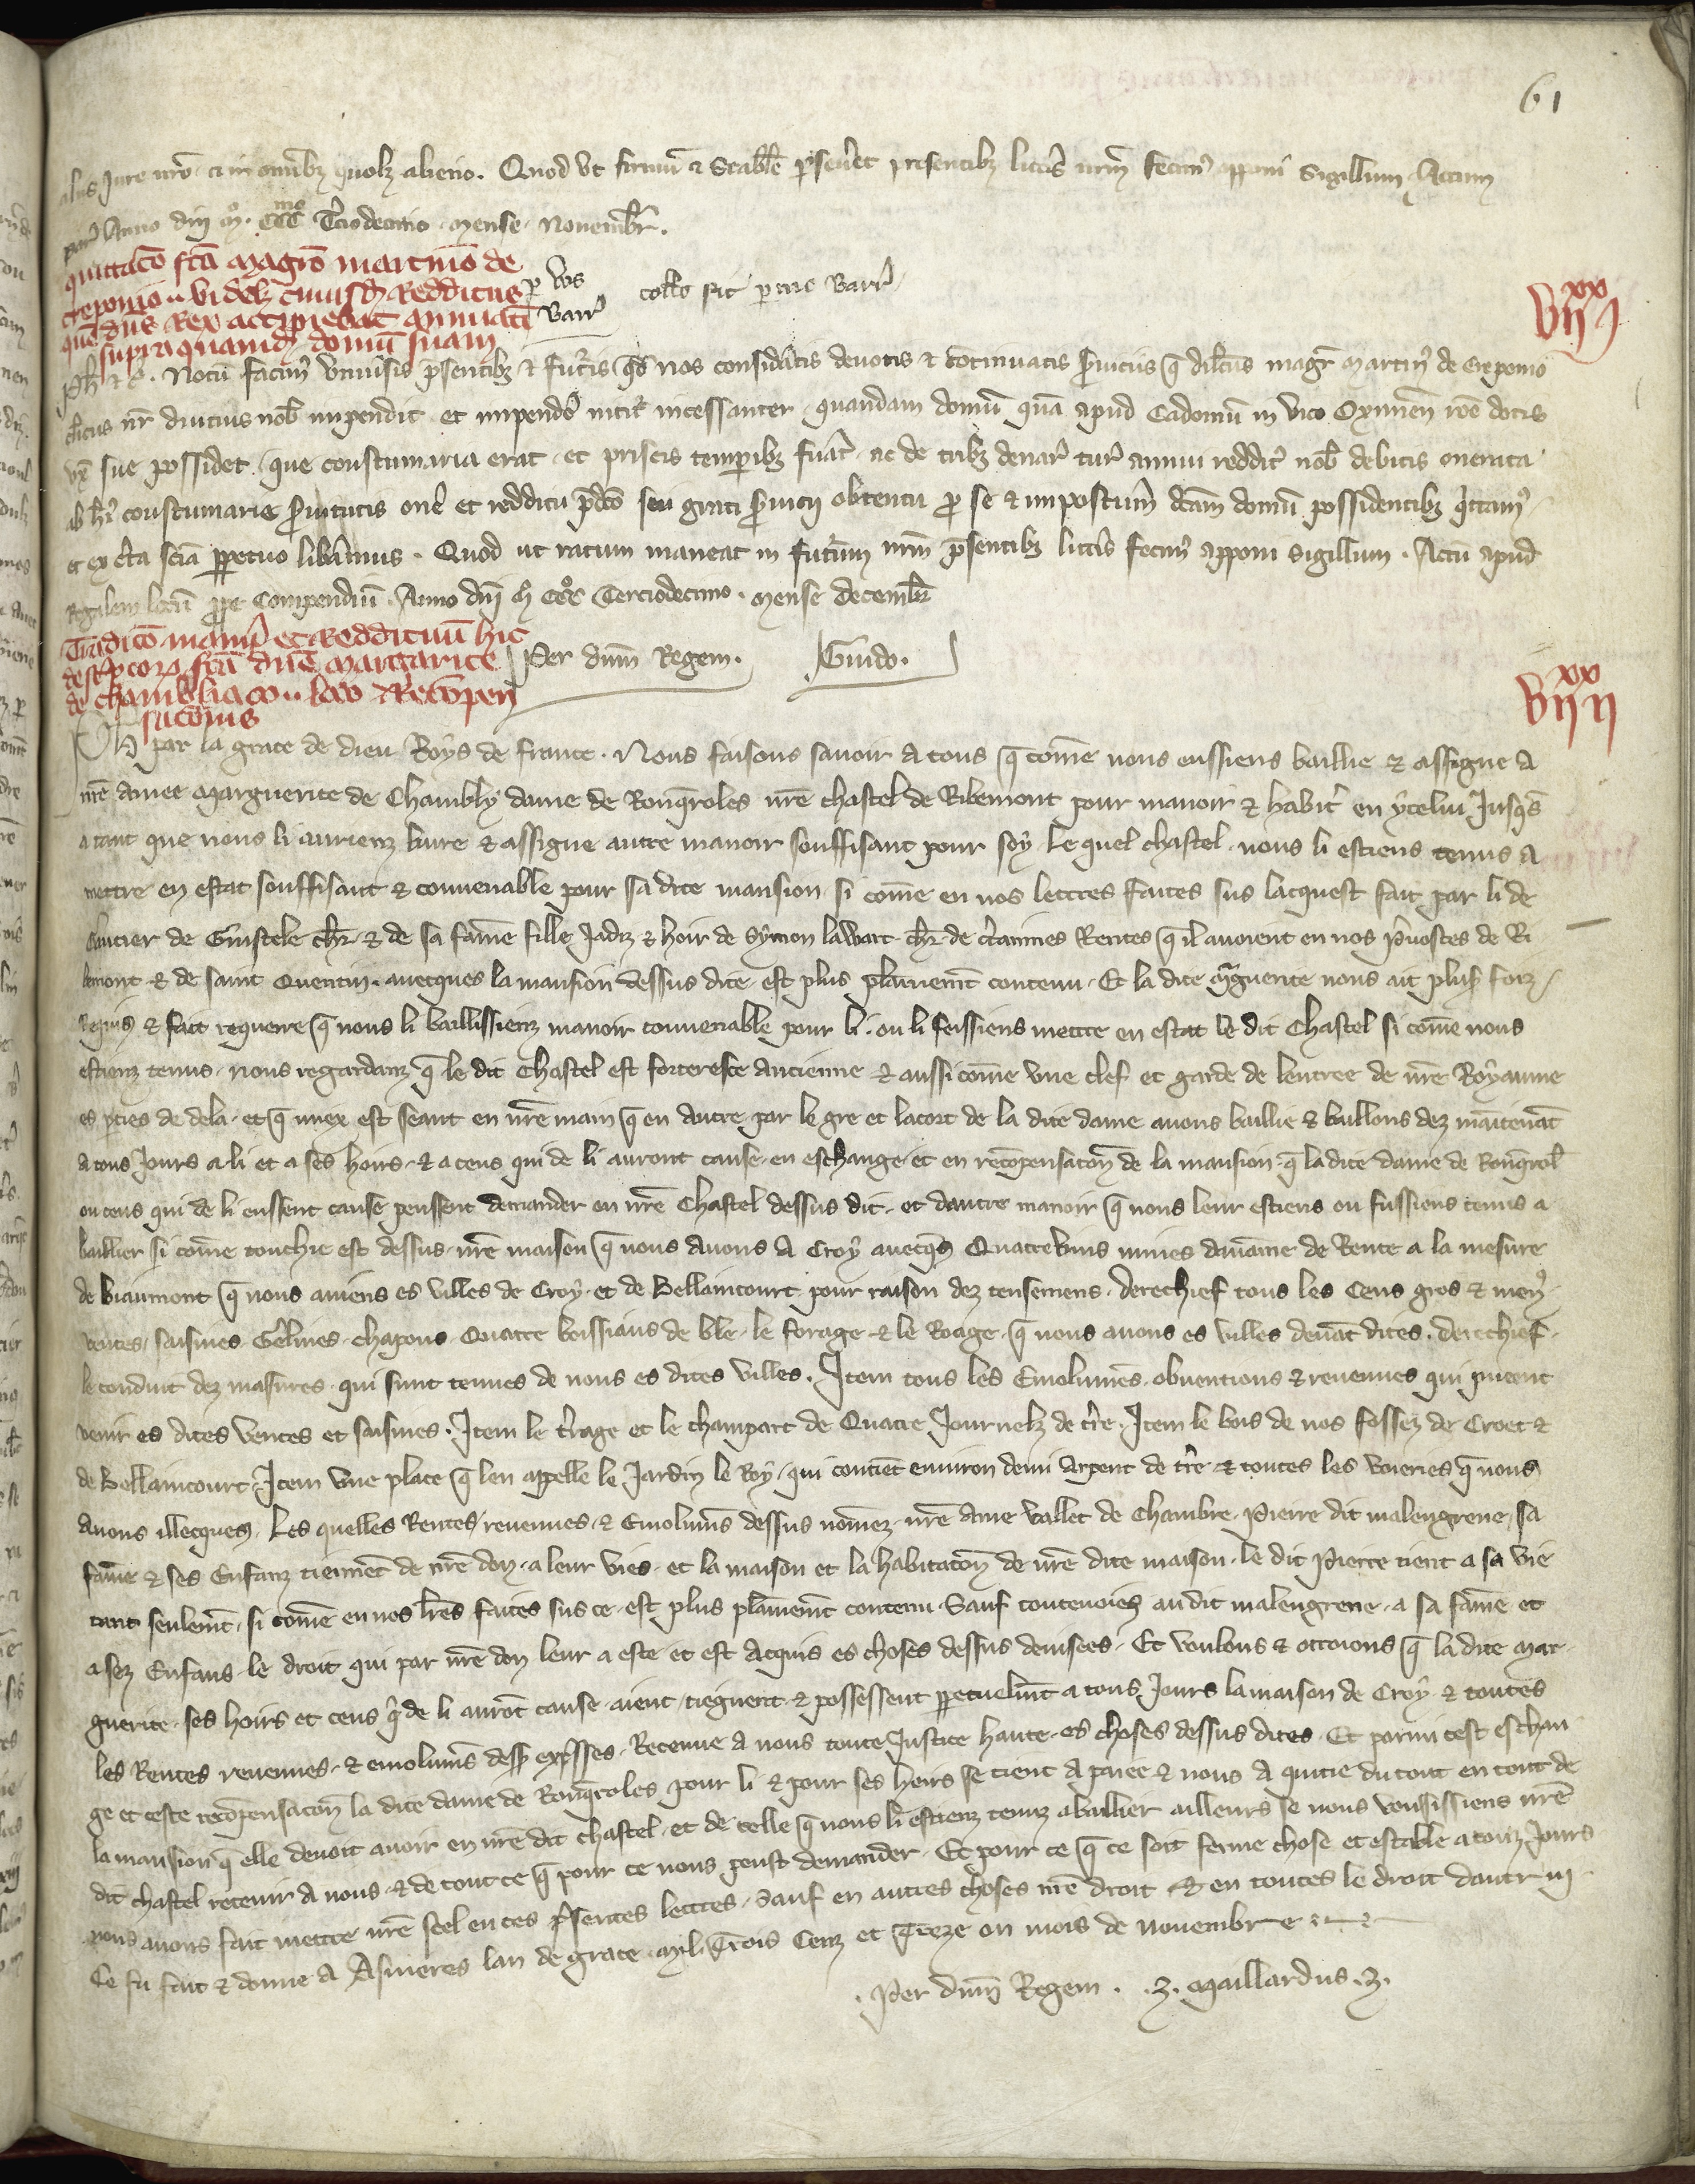 61
alias Jure nr̄o. et in omībꝫ quolꝫ alieno. Quod vt firmū et stabile ꝑseueret presentibꝫ litt'is nr̄m fecim' apponi sigillum. Actum
par' Anno dnī mº. cccmo Tc'iodecimo. mense. nouembr'.
quittacō fcā magrō martino de
creponio videlꝫ cuiusdā redditus
quē dn̄s Rex accipiebat annuatī
supra quamdā domū suam
ꝑ vos
Barr'
collō fit per me Barr'
VIIxx I
Ph̄ et c̄. Notū facim' vniu'sis p̄sentibꝫ et fut'is qd' nos consid'atis deuotis et cōtinuatis s'uiciis q̄ dilc̄us magr̄ Martin' de Creponio
cl'icus nr̄ diucius nob' impendit. et impende' nitit' incessanter. quandam domū quā apud Cadomū in vico Oximen̄ rōe dotis
vx' sue possidet. que coustumaria erat. et priscis temꝑibꝫ fu'at. ac de tribꝫ denar' tur' annui reddit' nob' debitis onerata
ab h' coustumarie s'uitutis on'e et redditu p̄dc̄o seu grati s'uicij obtentu ꝑ se et imposteru' dc̄am domū possidentibꝫ q'ttam'
et ex c'ta scīa ꝑpetuo lib'amus. Quod ut ratum maneat in futur̄m nr̄m p̄sentibꝫ litt'is fecim' apponi sigillum. Actū apud
Regalem locū ꝓpe Compendiū. Anno dnī mº cccº Terciodecimo. mense decembr'
Tradicō man'ij et reddituū hic
descptoꝝ fcā dn̄e Margarite
de chambliaco loco Recōpen
sacōnis
Per dnm̄ Regem. Guido.
VIIxx II
Ph̄ par la grace de dieu Roys de france. Nous faisons sauoir a tous q̄ cōme nous eussiens baillie et assigne a
nr̄e amee Marguerite de Chambly dame de Ronq̄roles nr̄e chastel de Ribemont pour manoir et habit' en ycelui Jusqs̄
a tant que nous li aurienz liure et assigne autre manoir souffisant pour soy. Le quel chastel. nous li estiens tenus a
mettre en estat souffisant et conuenable pour sa dite mansion. si cōme en nos lettres faites sus lacquest fait par li de
Gautier de Guistele chr̄. et de sa fame fille Jadiz et hoir de Symon lawart chr̄ de c'taines Rentes q̄ il auoient en nos p'uostes de Ri
bemont et de saint Quentin. auecques la mansion dessus dite. est plus plainemēt contenu. Et la dite mar̄guerite nous ait plus' foiz
requis et fait requerre q̄ nous li baillissienz manoir conuenable pour li. ou li feissiens mettre en estat le dit Chastel si cōme nous
estienz tenus. nous regardanz q̄ le dit Chastel est forteresce Ancienne et aussi cōme vne clef et garde de lentree de nr̄e Royaume
es ꝑties de dela. et q̄ miex est seant en nr̄e main q̄ en Autre par le gre et lacort de la dite dame auons baillie et baillons dez maītenāt
a tous Jours a li et a ses hoirs. et a ceus qui de li auront cause. en eschange et en recōpensacōn de la mansion q̄ ladite dame de Ronq̄rol'
ou ceus qui de li eussent cause peussent demander en nr̄e Chastel dessus dit. et dautre manoir q̄ nous leur estiens ou fussiens tenus a
baillier si cōme touchie est dessus. nr̄e maison q̄ nous Auons a Croy auecqs̄ Quatrevins mines dauaīne de Rente a la mesure
de biaumont q̄ nous auiens es villes de Croy et de Bellaincourt pour raison dez tensemens. derechief tous les Cens gros et men'
ventes, saisines Gelines. chapons. Quatre boissiaus de ble. le forage et le Roage. q̄ nous auons es villes deuāt dites. derechief.
le conduit dez masures. qui sunt tenues de nous es dites villes. Item tous les Emolumēs. obuentions et reuenues qui pueent
venir es dites ventes et saisines. Item le t'rage et le champart de Quatre Journelz de t're. Item le bois de nos fossez de Croet et
de Bellaincourt. Item vne place q̄ len appelle le Jardin le Roy. qui contiēt enuiron demi Arpent de t're et toutes les voieries q̄ nous
auons illecques. Les quelles Rentes, reuenues et Emolum̄s dessus nōmez. nr̄e Ame vallet de Chambre. Pierre dit malengrene, sa
fame et ses Enfanz tiennēt de nr̄e don a leur vies. et la maison et la habitacōn de nr̄e dite maison. le dit Pierre tient a sa vie
tant seulemēt. si cōme en nos lr̄es faites sus ce. est plus plainemēt contenu. Sauf toutevoies au dit malengrene. a sa fame et
a sez Enfans. le droit qui par nr̄e don leur a este et est Acquis es choses dessus deuisees. Et voulons et ottroions q̄ la dite Mar
guerite. ses hoirs et ceus q' de li aurōt cause. aient, tiegnent et possessent ꝑpetuelmēt a tous Jours la maison de Croy et toutes
les Rentes reuenues et emolum̄s dess' exp'sses. Retenue a nous toute Justice haute. es choses dessus dites. Et parmi cest eschan
ge et ceste recōpensacōn la dite dame de Ronq̄roles pour li et pour ses hoirs se tient a paiee et nous a quitie du tout en tout de
la mansion q̄ elle deuoit auoir en nr̄e dit chastel. et de celle q̄ nous li estienz tenuz a baillier ailleurs se nous vousissiens nr̄e
dit chastel retenir a nous. et de tout ce q̄ pour ce nous peust demander. Et pour ce q̄ ce soit ferme chose et estable a touz Jours
nous auons fait mettre nr̄e seel en ces p'sentes lettres. Sauf en autres choses nr̄e droit et en toutes le droit dautrui
Ce fu fait et donne a Asnieres lan de grace mil Trois Cenz et Treze ou mois de nouembre
Per dnm̄ Regem. .J. Maillardus. J.